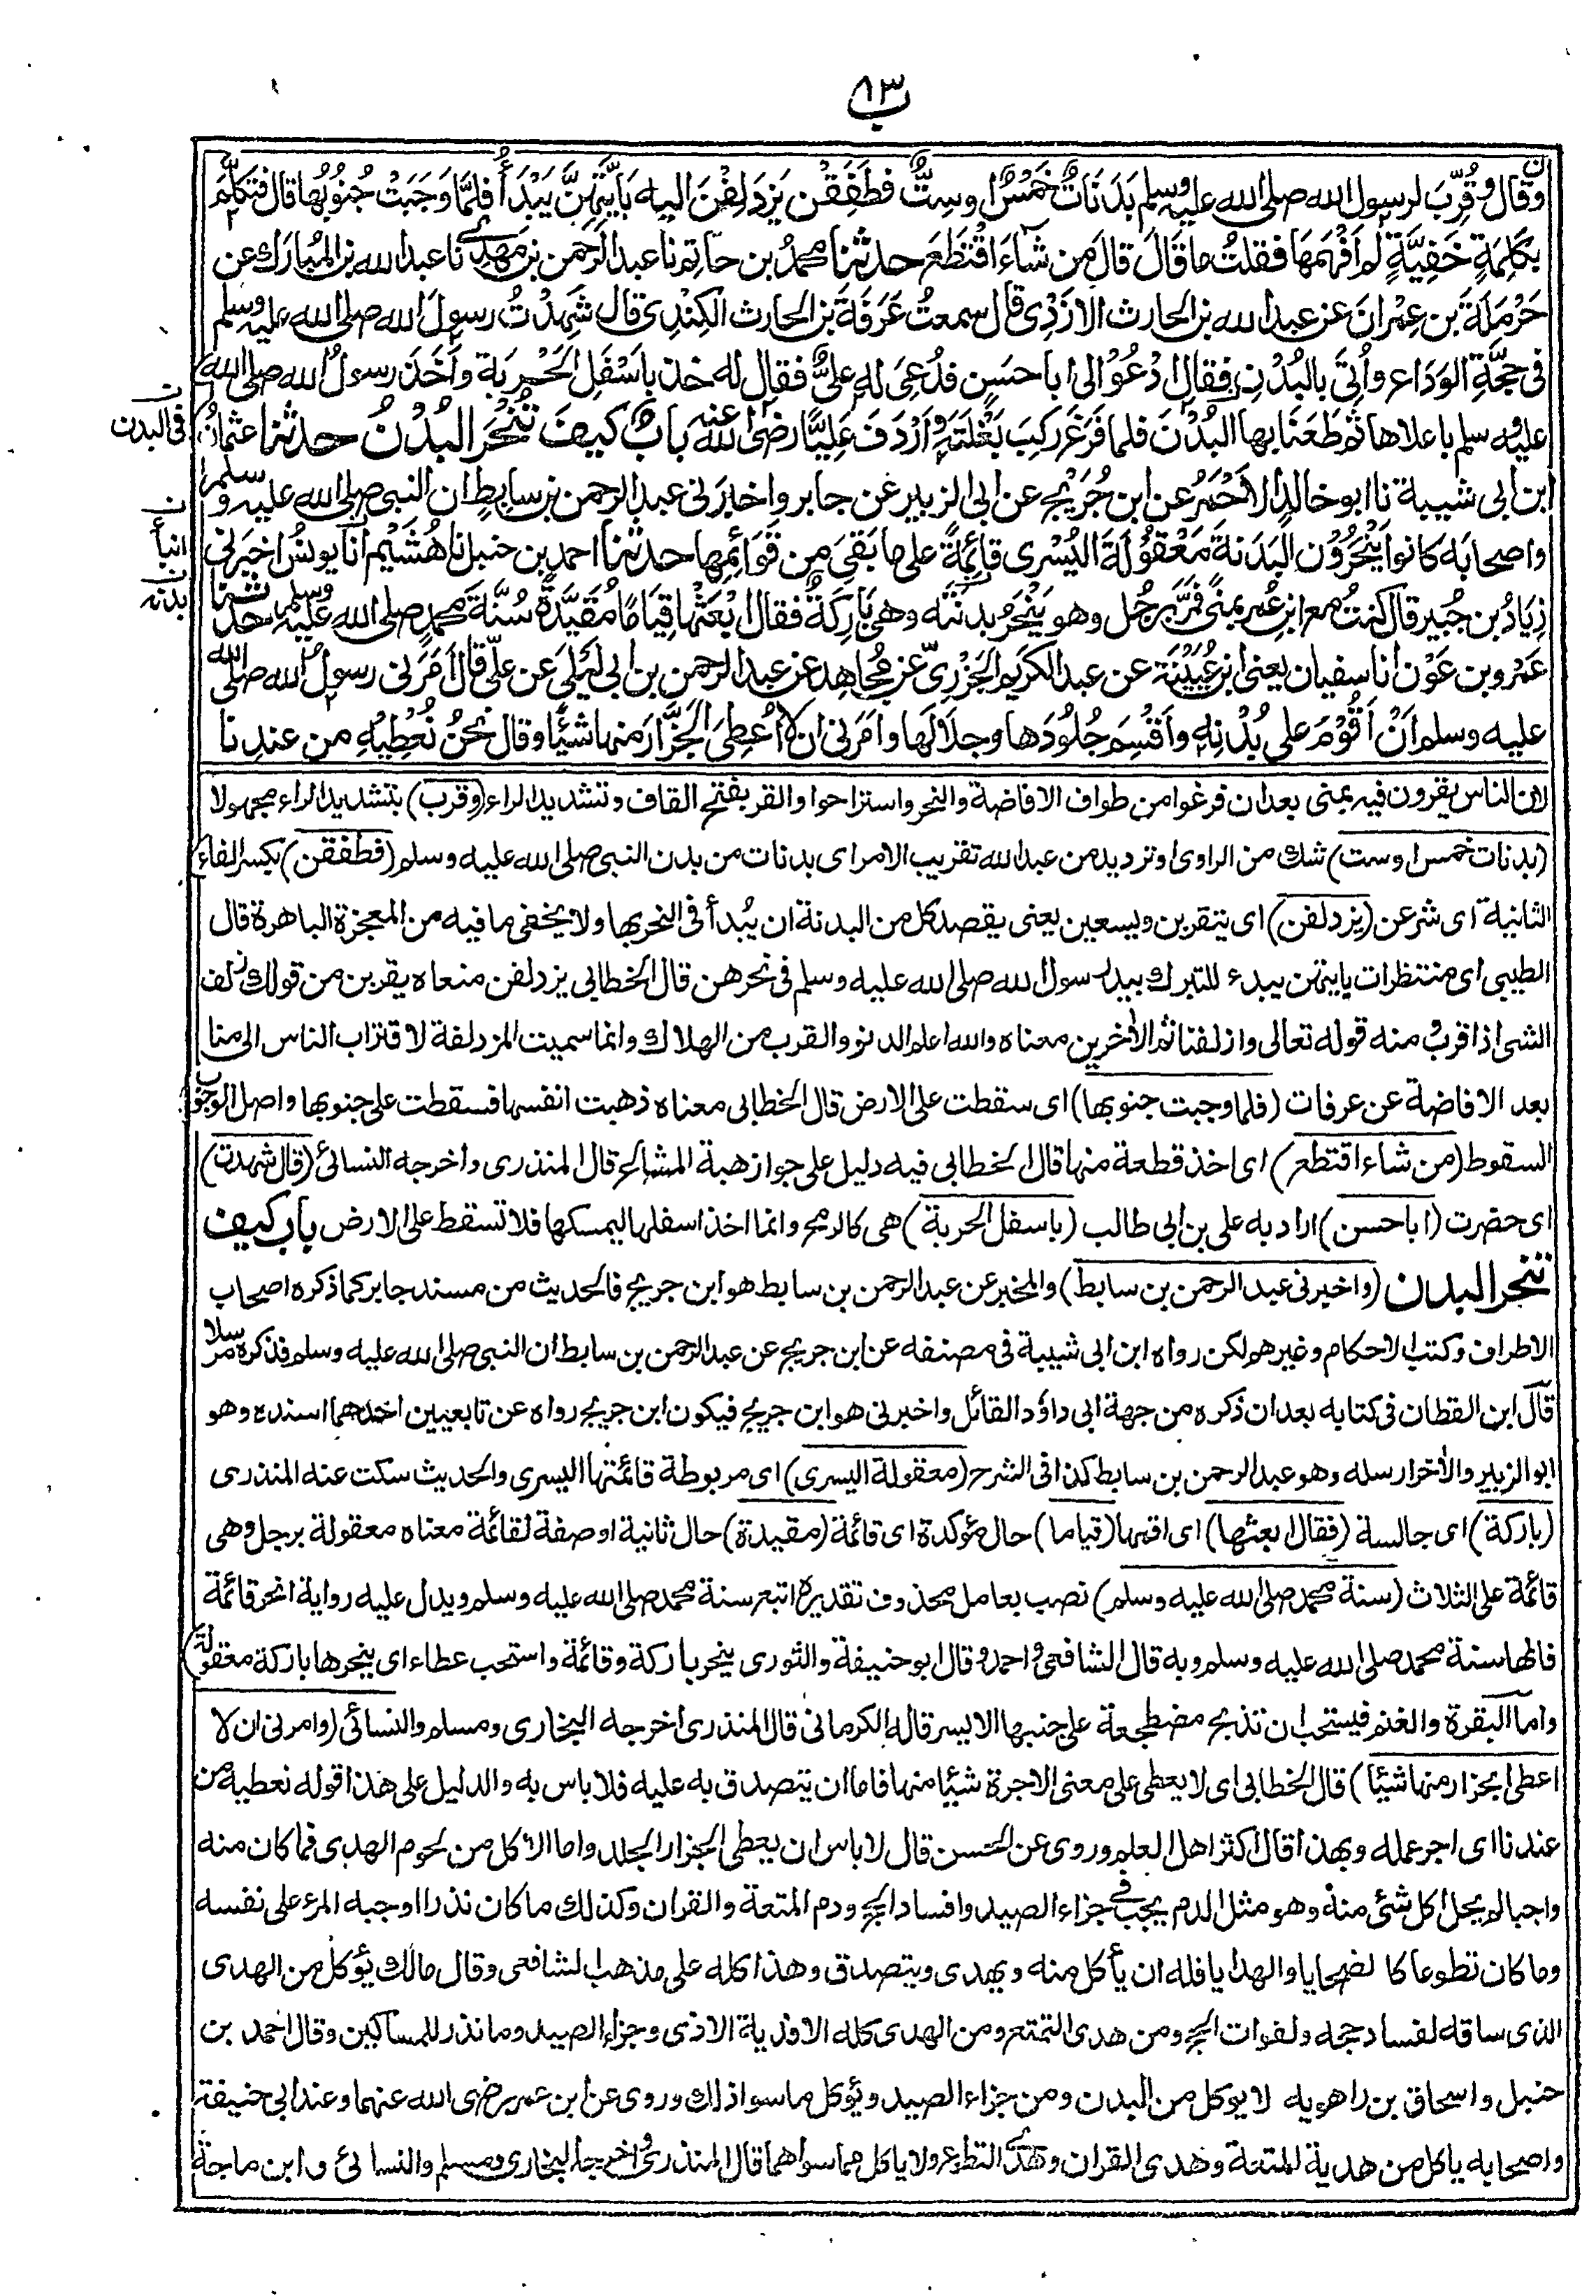 ٨٣
ب
وقال وقُرِّبَ لرسول الله صلى الله عليه وسلم بَدَنَاتٌ خَمْسٌ اوسِتٌّ فَطَفِقْن يَزْدَلِفْنَ اليه بِاَيَّتِهِنَّ يَبْدَأُ فَلَمَّا وَجَبَتْ جُنُوْبُهَا قال فتَكَلَّمَ
بِكَلِمَةٍ خَفِيَّةٍ لم اَفْهَمْهَا فقلتُ ما قَالَ قالَ مَن شَاءَ اقْتَطَعَ حدثنا محمدُ بن حَاتِم نا عبد الرحمن بن مَهدى نا عبد الله بن المُبارَك عن
حَرْمَلَةَ بن عِمْرانَ عن عبد الله بن الحارث الازْدِى قال سمعتُ غَرَفَةَ بن الحارث الكِنْدِى قال شَهِدْتُ رسولَ الله صلى الله عليه وسلم
فى حجَّةِ الوَدَاع وأُتِىَ بالبُدْنِ فقال ادْعُوْا لى اباحَسَنٍ فدُعِىَ له عَلِىٌّ فقال له خذ بِاَسْفَلِ الحَرْبَةِ واَخَذَ رسولُ الله صلى الله
عليه وسلم باعلاها ثم طَعَنَا بها البُدْنَ فلما فَرَغَ رَكِبَ بَغْلَتَهٗ واَرْدَفَ عَلِيًّا رضى الله عنه بابٌ كيفَ تُنْحَرُ البُدْنُ حدثنا عثمانُ
فى البدن
ابن ابى شيبة نا ابو خالدٍ الاَحْمَرُ عن ابن جُرَيْجٍ عن ابى الزبير عن جابر واخبَرَنى عبد الرحمن بن سابِطٍ ان النبى صلى الله عليه وسلم
واصحابَه كانوا يَنْحَرُوْن البَدَنَةَ مَعْقُوْلَةَ اليُسْرى قائِمَةً على ما بَقِىَ من قَوَائِمِها حدثنا احمد بن حنبل نا هُشَيْم انا يونُسُ اخبَرَنى
انبأ
زِيَادُ بن جُبير قال كنتُ مع ابن عُمر بِمِنًى فَمَرَّ برجُل وهو يَنْحَرُ بدنَتَه وهى بَارِكَةٌ فقال ابْعَثْها قِيَامًا مُقَيَّدَةً سُنَّةَ محمدٍ صلى الله عليه وسلم حدثنا
بدنه
عَمْرو بن عَوْن انا سفيان يعنى ابن عُيَيْنَة عن عبد الكريم الجَزْرِىّ عن مُجَاهِد عن عبد الرحمن بن ابى لَيْلى عن علىّ قال اَمَرَنى رسولُ الله صلى الله
عليه وسلم اَنْ اَقُوْمَ على بُدْنِه واَقْسِمَ جُلُوْدَها وجِلَالَها واَمَرَنى ان لا اُعْطِىَ الجَزَّارَ منها شيئًا وقال نحنُ نُعْطِيْهِ من عندِنا
لان الناس يقرون فيه بمنى بعد ان فرغوا من طواف الافاضة والنحر واستراحوا والقر بفتح القاف وتشديد الراء (وقرب) بتشديد الراء مجهولا
(بدنات خمس اوست) شك من الراوى او ترديد من عبد الله تقريب الامر اى بدنات من بدن النبى صلى الله عليه وسلم (فطفقن) بكسر الفاء
الثانية اى شرعن (يزدلفن) اى يتقربن ويسعين يعنى يقصد كل من البدنة ان يُبدأ فى النحر بها ولا يخفى ما فيه من المعجزة الباهرة قال
الطيبى اى منتظرات بايتهن يبدء للتبرك بيد رسول الله صلى الله عليه وسلم فى نحرهن قال الخطابى يزدلفن منعاه يقربن من قولك زلف
الشئ اذا قرب ومنه قوله تعالى وازلفنا ثم الاٰخرين معناه والله اعلم الدنو والقرب من الهلاك وانما سميت المزدلفة لاقتراب الناس الى منا
بعد الافاضة عن عرفات (فلما وجبت جنوبها) اى سقطت على الارض قال الخطابى معناه ذهبت انفسها فسقطت على جنوبها واصل الوجوب
السقوط (من شاء اقتطع) اى اخذ قطعة منها قال الخطابى فيه دليل على جواز هبة المشاع قال المنذرى واخرجه النسائى (قال شهدت)
اى حضرت (اباحسن) اراد به على بن ابى طالب (باسفل الحربة) هى كالرمح وانما اخذ اسفلها ليمسكها فلا تسقط على الارض باب كيف
تنحر البدن (واخبرنى عبد الرحمن بن سابط) والمخبر عن عبد الرحمن بن سابط هو ابن جريج فالحديث من مسند جابر كما ذكره اصحاب
الاطراف وكتب الاحكام وغيرهم ولكن رواه ابن ابى شيبة فى مصنفه عن ابن جريج عن عبد الرحمن بن سابط ان النبى صلى الله عليه وسلم فذكره مرسلا
قال ابن القطان فى كتابه بعد ان ذكره من جهة ابى داؤد القائل واخبرنى هو ابن جريج فيكون ابن جريج رواه عن تابعيين احدهما اسنده وهو
ابو الزبير والاٰخر ارسله وهو عبد الرحمن بن سابط كذا فى الشرح (معقولة اليسرى) اى مربوطة قائمتها اليسرى والحديث سكت عنه المنذرى
(باركة) اى جالسة (فقال ابعثها) اى اقمها (قياما) حال مؤكدة اى قائمة (مقيدة) حال ثانية او صفة لقائمة معناه معقولة برجل وهى
قائمة على الثلاث (سنة محمد صلى الله عليه وسلم) نصب بعامل محذوف تقديره اتبع سنة محمد صلى الله عليه وسلم ويدل عليه رواية انحر قائمة
فانها سنة محمد صلى الله عليه وسلم وبه قال الشافعى واحمد وقال ابو حنيفة والثورى ينحر باركة وقائمة واستحب عطاء اى ينحرها باركة معقولة)
واما البقرة والغنم فيستحب ان تذبح مضطجعة على جنبها الايسر قاله الكرمانى قال المنذرى اخرجه البخارى ومسلم والنسائى (وامرنى ان لا
اعطى الجزار منها شيئا) قال الخطابى اى لا يعطى على معنى الاجرة شيئا منها فاما ان يتصدق به عليه فلا باس به والدليل على هذا قوله نعطيه من
عندنا اى اجر عمله وبهذا قال اكثر اهل العلم وروى عن الحسن قال لا باس ان يعطى الجزار الجلد واما الاكل من لحوم الهدى فما كان منه
واجبا لم يحل اكل شئ منه وهو مثل الدم يجب فى جزاء الصيد وافساد الحج ودم المتعة والقران وكذلك ما كان نذرا اوجبه المرء على نفسه
وما كان تطوعا كالضحايا والهدايا فله ان يأكل منه ويهدى ويتصدق وهذا كله على مذهب الشافعى وقال مالك يؤكل من الهدى
الذى ساقه لفساد حجه ولفوات الحج ومن هدى التمتع ومن الهدى كله الا فدية الاذى وجزاء الصيد وما نذر للمساكين وقال احمد بن
حنبل واسحاق بن راهويه لا يوكل من البدن ومن جزاء الصيد ويؤكل ما سوا ذلك وروى عن ابن عمر رضى الله عنهما وعند ابى حنيفة
واصحابه ياكل من هدية المتعة وهدى القران وهدى التطوع ولا ياكل مما سواهما قال المنذرى واخرجه البخارى ومسلم والنسائى وابن ماجة